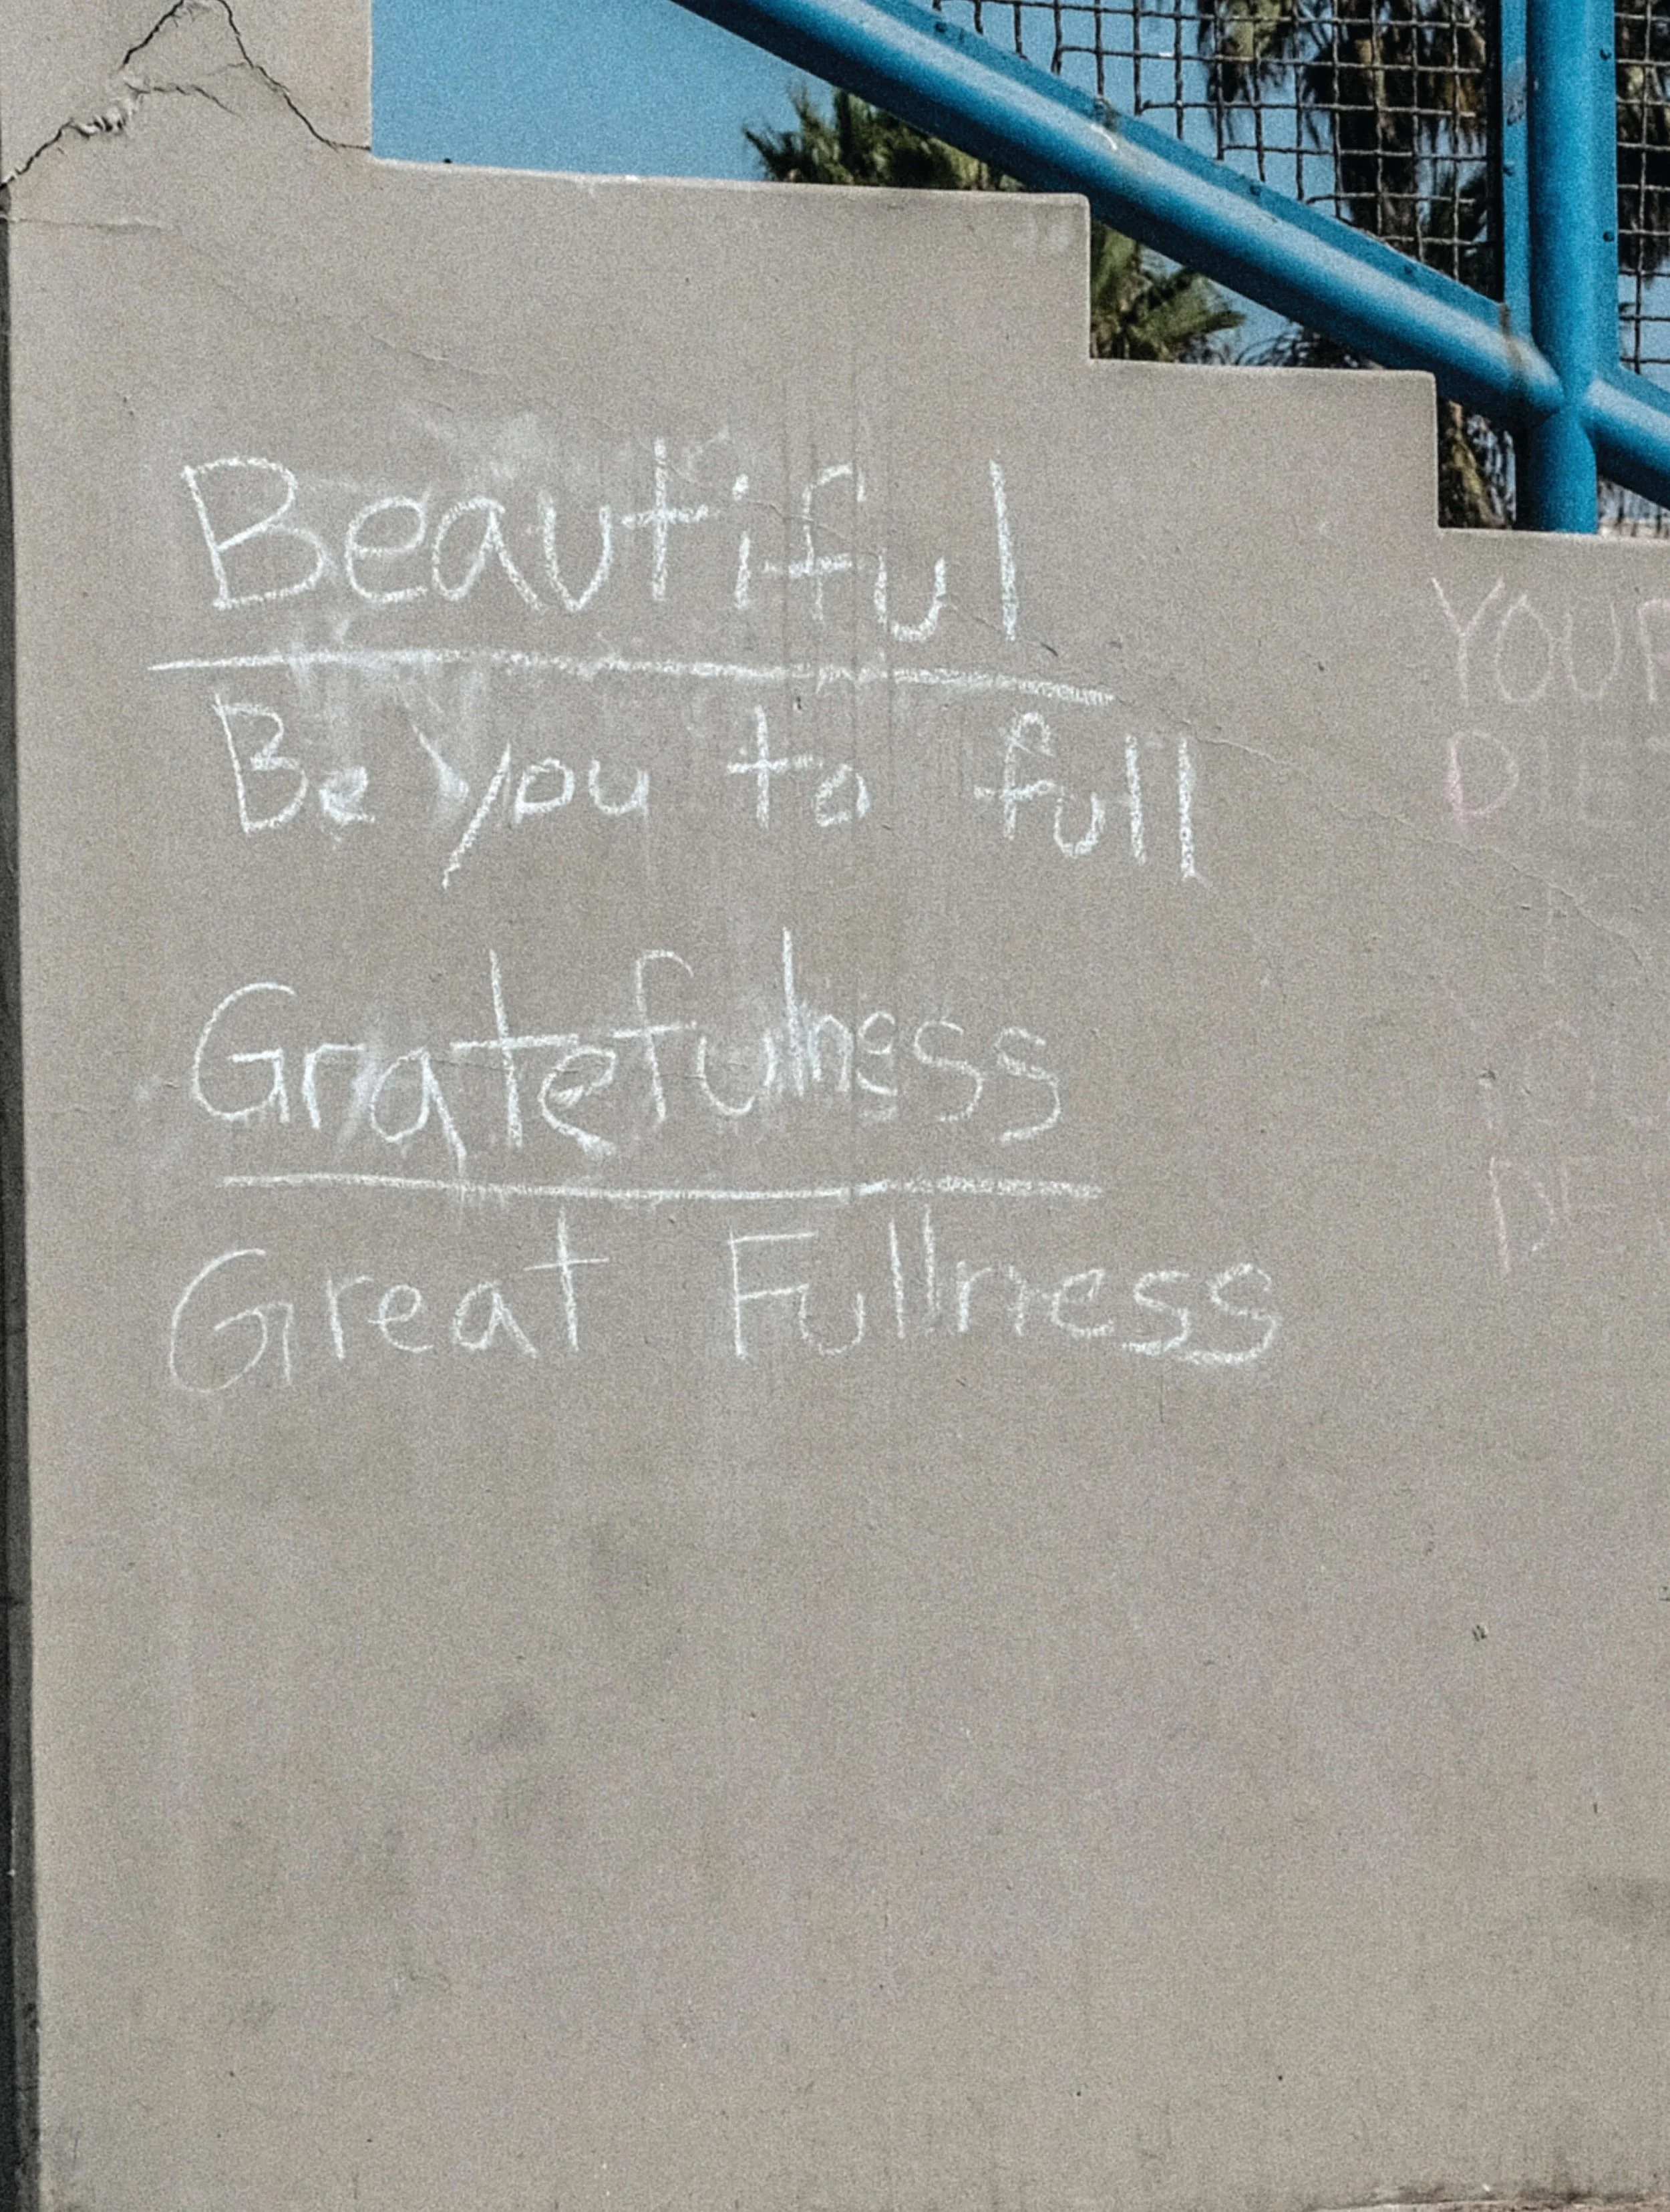 Beautiful
Be you to full
Gratefulness
Great Fullness
YOUR